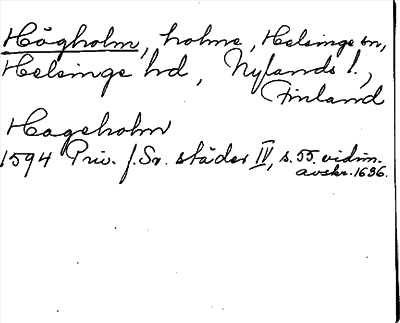 Högholm, holme, Helsinge sn,
Helsinge hd, Nylands l.,
Finland
Hogeholm
1594 Priv. f. Sv. städer IV, s. 55. vidim.
avskr. 1636.